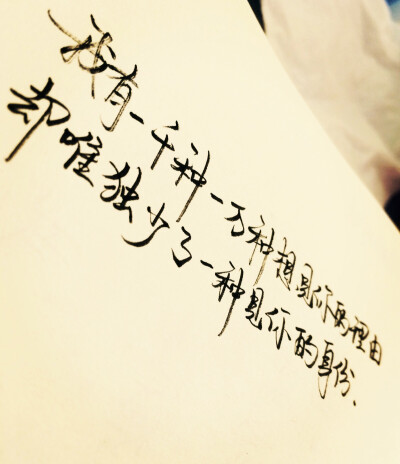 我有一千种一万种想见你的理由
却唯独少了一种见你的身份.